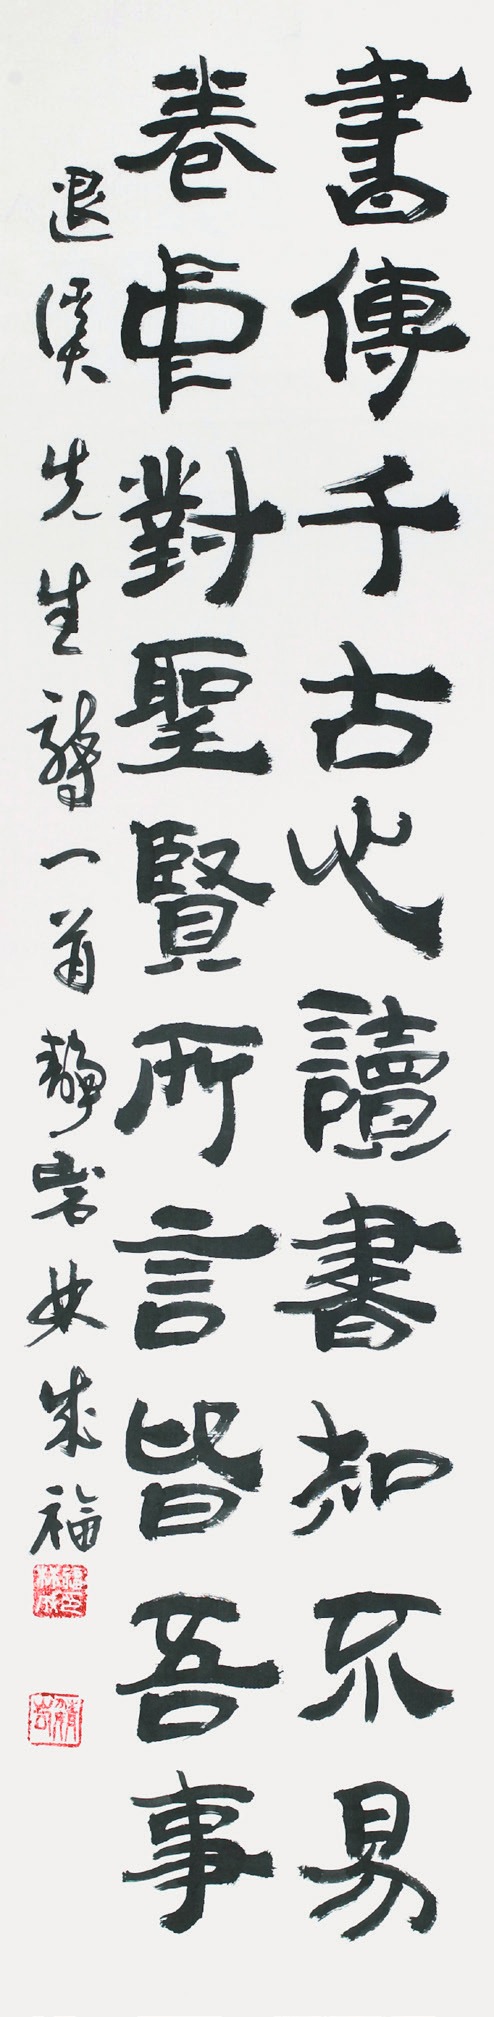 書傳千古心讀書知不易
卷中對聖賢所言皆吾事
退溪先生詩一首靜岩